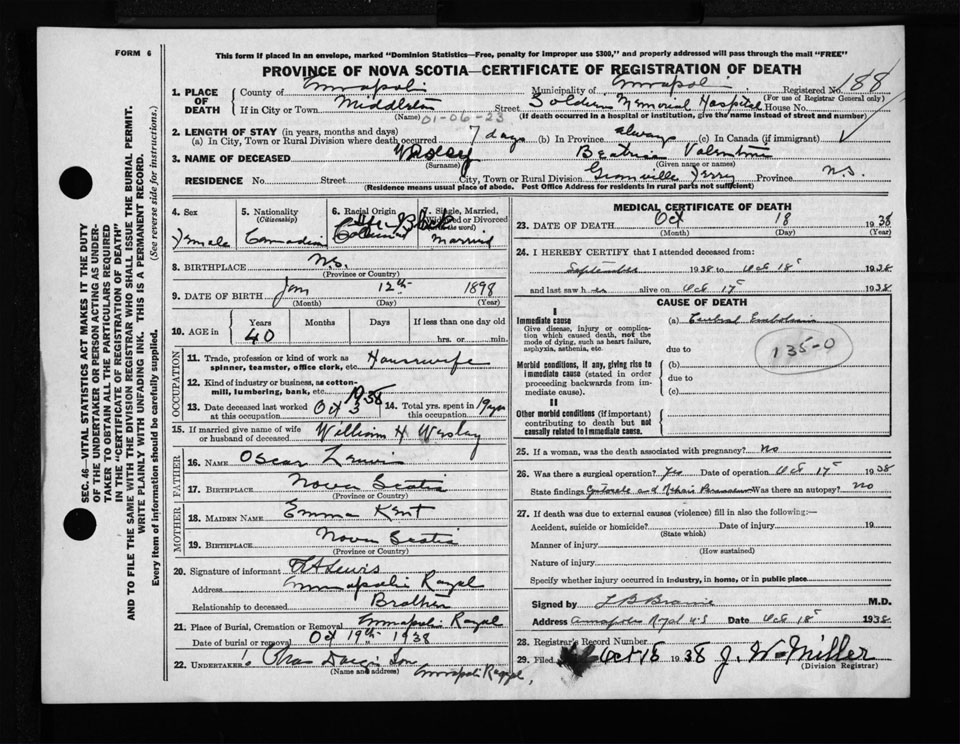 FORM 6
This form if placed in an envelope, marked "Dominion Statistics—Free, penalty for improper use $300," and properly addressed will pass through the mail "FREE"
PROVINCE OF NOVA SCOTIA—CERTIFICATE OF REGISTRATION OF DEATH
SEC. 46—VITAL STATISTICS ACT MAKES IT THE DUTY
OF THE UNDERTAKER OR PERSON ACTING AS UNDER-
TAKER TO OBTAIN ALL THE PARTICULARS REQUIRED
IN THE "CERTIFICATE OF REGISTRATION OF DEATH"
AND TO FILE THE SAME WITH THE DIVISION REGISTRAR WHO SHALL ISSUE THE BURIAL PERMIT.
WRITE PLAINLY WITH UNFADING INK. THIS IS A PERMANENT RECORD.
Every item of information should be carefully supplied. (See reverse side for instructions.)
1. PLACE OF DEATH County of Annapolis Municipality of Annapolis Registered No. 188
(For use of Registrar General only)
If in City or Town Middleton Street Soldiers Memorial Hospital House No.
(Name) 01-06-23 (If death occurred in a hospital or institution, give the name instead of street and number)
2. LENGTH OF STAY (in years, months and days)
(a) In City, Town or Rural Division where death occurred 7 days (b) In Province always (c) In Canada (if immigrant)
3. NAME OF DECEASED Wesley Beatrice Valentine
(Surname) (Given name or names)
RESIDENCE No. Street City, Town or Rural Division Granville Ferry Province N.S.
(Residence means usual place of abode. Post Office Address for residents in rural parts not sufficient)
4. Sex 5. Nationality (Citizenship) 6. Racial Origin 7. Single, Married, Widowed or Divorced (Write the word)
Female Canadian Coloured Black Married
8. BIRTHPLACE N.S.
(Province or Country)
9. DATE OF BIRTH Jan 12th 1898
(Month) (Day) (Year)
10. AGE in Years Months Days If less than one day old
40 hrs. or min.
OCCUPATION
11. Trade, profession or kind of work as spinner, teamster, office clerk, etc. Housewife
12. Kind of industry or business, as cotton-mill, lumbering, bank, etc.
13. Date deceased last worked at this occupation Oct 3 1938 14. Total yrs. spent in this occupation 19 yrs
15. If married give name of wife or husband of deceased William H Wesley
FATHER
16. NAME Oscar Lewis
17. BIRTHPLACE Nova Scotia
(Province or Country)
MOTHER
18. MAIDEN NAME Emma Kent
19. BIRTHPLACE Nova Scotia
(Province or Country)
20. Signature of informant Lewis
Address Annapolis Royal
Relationship to deceased Brother
21. Place of Burial, Cremation or Removal Annapolis Royal
Date of burial or removal Oct 19th 1938
22. UNDERTAKER Chas Son Annapolis Royal,
(Name and address)
MEDICAL CERTIFICATE OF DEATH
23. DATE OF DEATH Oct 18 1938
(Month) (Day) (Year)
24. I HEREBY CERTIFY that I attended deceased from:
September 1938 to Oct 18th 1938
and last saw her alive on Oct 17th 1938
CAUSE OF DEATH
I
Immediate cause (a) Cerebral Embolism
Give disease, injury or complication which caused death, not the mode of dying, such as heart failure, asphyxia, asthenia, etc.
due to
135-0
Morbid conditions, if any, giving rise to immediate cause (stated in order proceeding backwards from immediate cause).
(b)
due to
(c)
II
Other morbid conditions (if important) contributing to death but not causally related to immediate cause.
25. If a woman, was the death associated with pregnancy? No
26. Was there a surgical operation? Yes Date of operation Oct 17th 1938
State findings and Repair Was there an autopsy? No
27. If death was due to external causes (violence) fill in also the following:—
Accident, suicide or homicide? Date of injury 19
(State which)
Manner of injury
(How sustained)
Nature of injury
Specify whether injury occurred in industry, in home, or in public place
Signed by L B M.D.
Address Annapolis Royal N.S. Date Oct 18 1938
28. Registrar's Record Number
29. Filed Oct 18 1938 J. W. Miller
(Division Registrar)